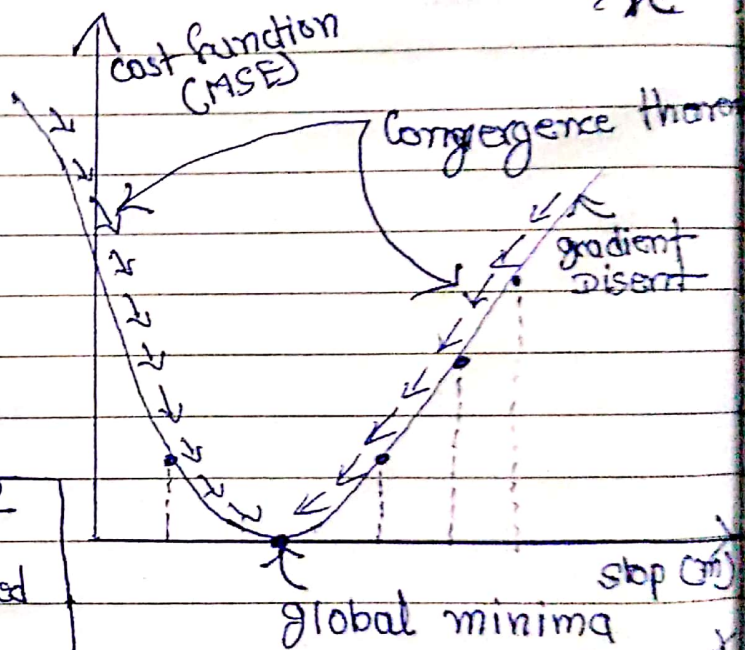 cost function
(MSE)
Congergence
gradient
Disent
slop (m)
global minima